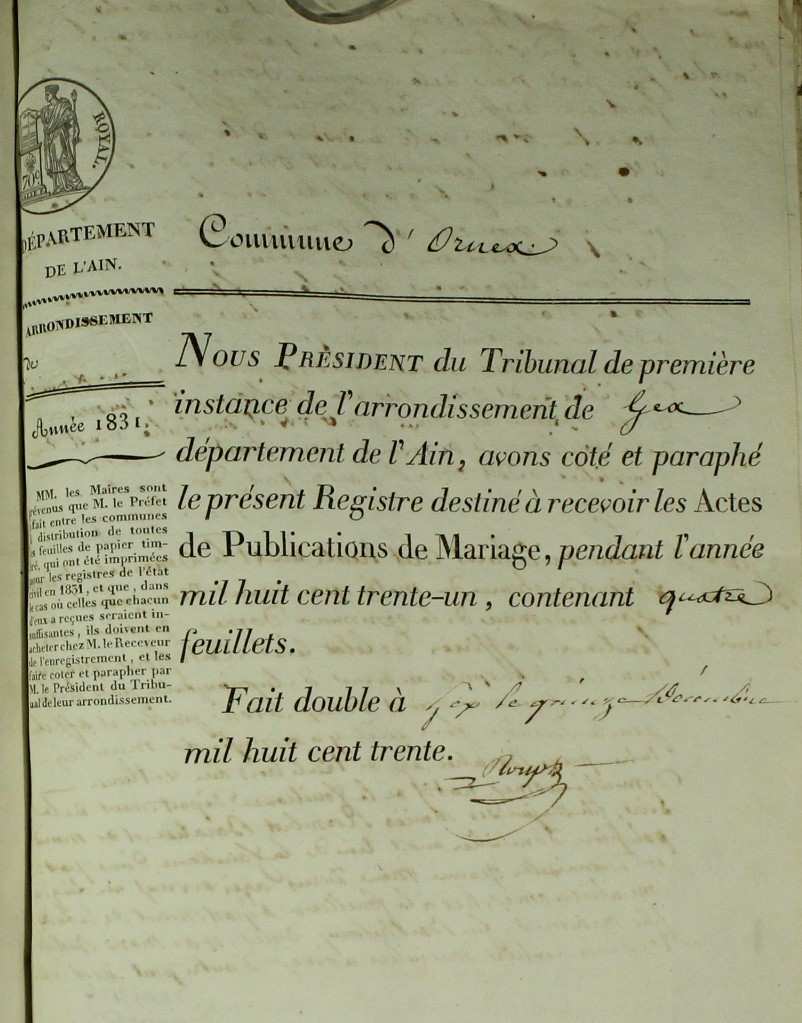 ROYAL.
70c
DÉPARTEMENT
DE L'AIN.
ARRONDISSEMENT
de
Année 1831.
MM. les Maires sont
prévenus que M. le Préfet
fait entre les communes
distribution de toutes
feuilles de papier tim-
bré, qui ont été imprimées
pour les registres de l'état
civil en 1831, et que, dans
le cas où celles que chacun
d'eux a reçues seraient in-
suffisantes, ils doivent en
acheter chez M. le Receveur
de l'enregistrement, et les
faire coter et parapher par
M. le Président du Tribu-
nal de leur arrondissement.
Commune d'Ornex
NOUS PRÉSIDENT du Tribunal de première
instance de l'arrondissement de Gex
département de l'Ain, avons coté et paraphé
le présent Registre destiné à recevoir les Actes
de Publications de Mariage, pendant l'année
mil huit cent trente-un, contenant quatre
feuillets.
Fait double à Gex le quinze Décembre
mil huit cent trente.